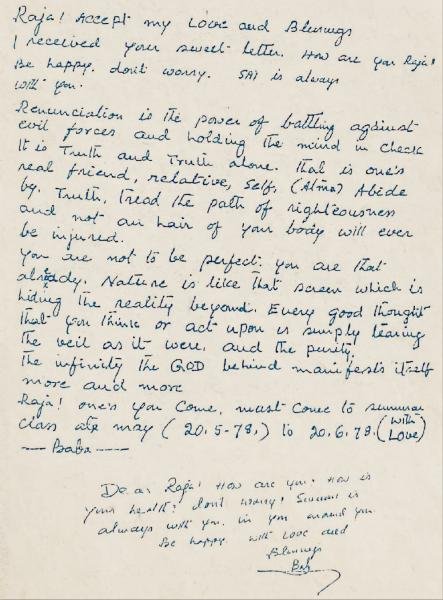 Raja! Accept my Love and Blessings
I received your sweet letter. How are you Raja!
Be happy. don't worry. SAI is always
with you.
Renunciation is the power of battling against
evil forces and holding the mind in check
It is Truth and Truth alone. that is one's
real friend, relative, Self, (Atma) Abide
by. Truth, tread the path of righteousness
and not an hair of your body will ever
be injured.
you are not to be perfect. you are that
already. Nature is like that screen which is
hiding the reality beyond. Every good thought
that you think or act upon is simply tearing
the veil as it were. and the purity.
the infinity the GOD behind manifests itself
more and more
Raja! one's you come, must come to summar
class at may (20.5-78.) to 20.6.78. (with
Love)
— Baba —
Dear Raja! How are you. How is
your health? don't worry! Swami is
always with you. in you around you.
Be happy. with Love and
Blessings
Baba